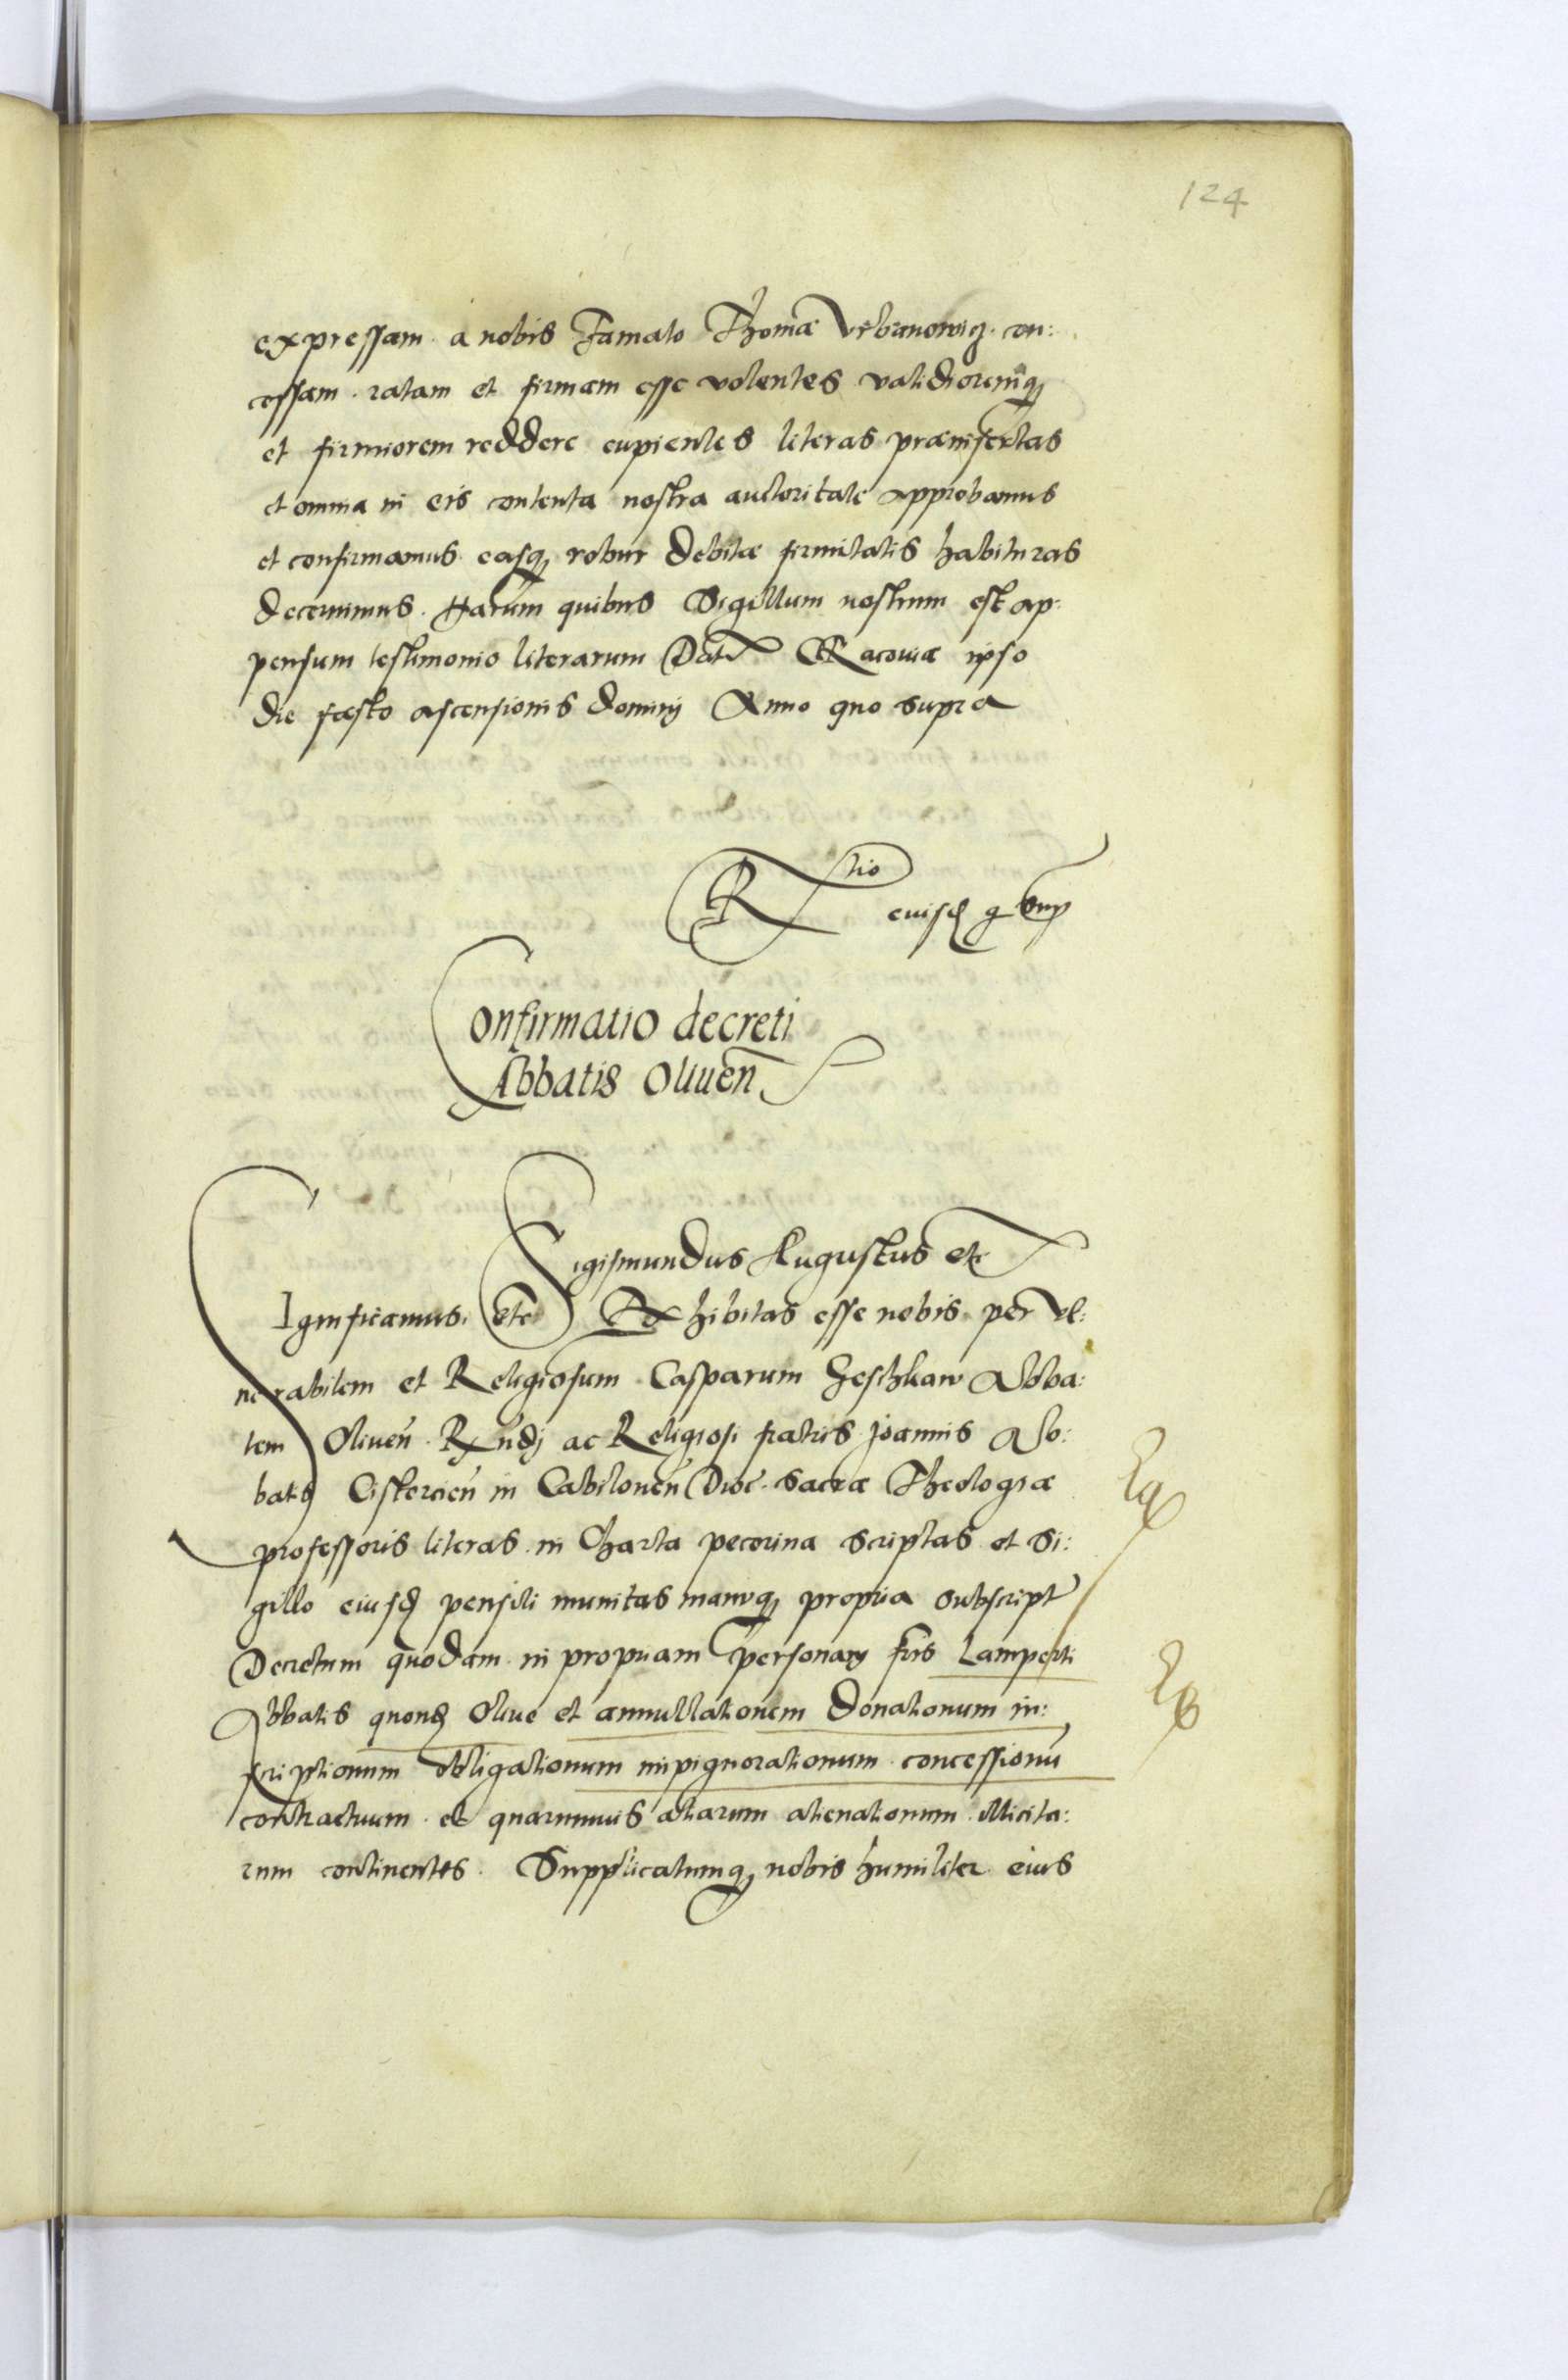 124
expressam a nobis Famato Thomæ Vrbanowicz con:
cessam ratam et firmam esse volentes validioremq
et firmiorem reddere cupientes literas præinsertas
et omnia in eis contenta nostra auctoritate approbamus
et confirmamus easq robur debitæ firmitatis habituras
decernimus. Harum quibus Sigillum nostrum est ap:
pensum testimonio literarum Dat Cracoviæ ipso
die festo ascensionis dominj Anno quo supra
R tio eiusd
Confirmatio decreti
Abbatis Oliuen
Sigismundus Augustus etc
Significamus. etc Exhibitas esse nobis per Ve:
nerabilem et Religiosum Casparum Geschkaw Abba:
tem Oliuen Rndj ac Religiosi fratris Joannis Ab:
batis Cistercien in Cabilonen Dioc. sacræ Theologiæ
professoris literas in Charta pecorina scriptas et Si:
gillo eiusd pensili munitas manuq propria subscript
Decretum quodam in propriam personam fris Lamperti
Abbatis quond Oliue et annullationem donationum in:
scriptionum obligationum inpignorationum concessionu
contractuum et quarumuis aliarum alienationum illicita:
rum continentes. Supplicatumq nobis humiliter eius